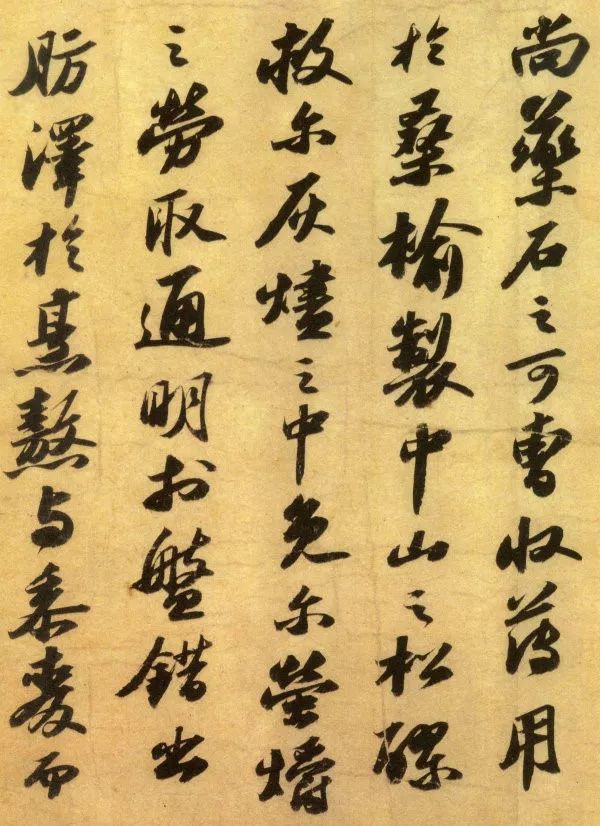 尚藥石之可曹收薄用
於桑榆製中山之松醪
救尔灰燼之中免尔螢爝
之勞取通明於盤錯出
肪澤於烹熬与黍麥而